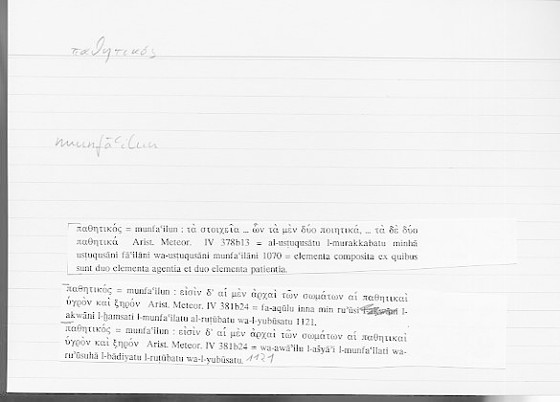 παθητικός
munfaʿilun
παθητικός = munfaʿilun : τὰ στοιχεῖα ... ὧν τὰ μὲν δύο ποιητικά, ... τὰ δὲ δύο
παθητικά Arist. Meteor. IV 378b13 = al-usṭuqusātu l-murakkabatu minhā
usṭuqusāni fāʿilāni wa-usṭuqusāni munfaʿilāni 1070 = elementa composita ex quibus
sunt duo elementa agentia et duo elementa patientia.
παθητικός = munfaʿilun : εἰσὶν δ' αἱ μὲν ἀρχαὶ τῶν σωμάτων αἱ παθητικαὶ
ὑγρὸν καὶ ξηρόν Arist. Meteor. IV 381b24 = fa-aqūlu inna min ruʾūsi l-
akwāni l-ḫamsati l-munfaʿilatu al-ruṭūbatu wa-l-yubūsatu 1121.
παθητικός = munfaʿilun : εἰσὶν δ' αἱ μὲν ἀρχαὶ τῶν σωμάτων αἱ παθητικαὶ
ὑγρὸν καὶ ξηρόν Arist. Meteor. IV 381b24 = wa-awāʾilu l-ašyāʾi l-munfaʿilati wa-
ruʾūsuhā l-bādiyatu l-ruṭūbatu wa-l-yubūsatu. 1121